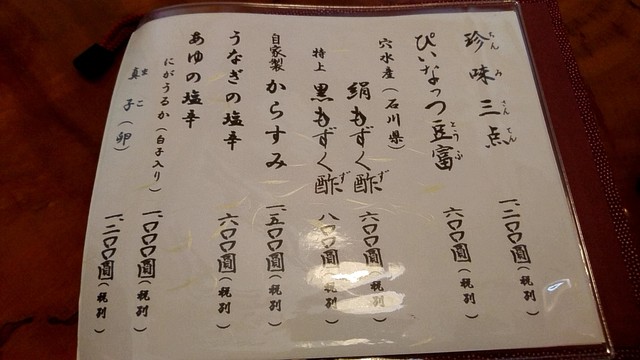 珍味三点 一、二〇〇圓（税別）
ちんみさんてん
ぴいなっつ豆富 六〇〇圓（税別）
とうふ
穴水産（石川県）
絹もずく酢 六〇〇圓（税別）
ず
特上 黒もずく酢 八〇〇圓（税別）
ず
自家製 からすみ 一、五〇〇圓（税別）
うなぎの塩辛 六〇〇圓（税別）
あゆの塩辛
にがうるか（白子入り） 一、〇〇〇圓（税別）
真子（卵） 一、二〇〇圓（税別）
まこ